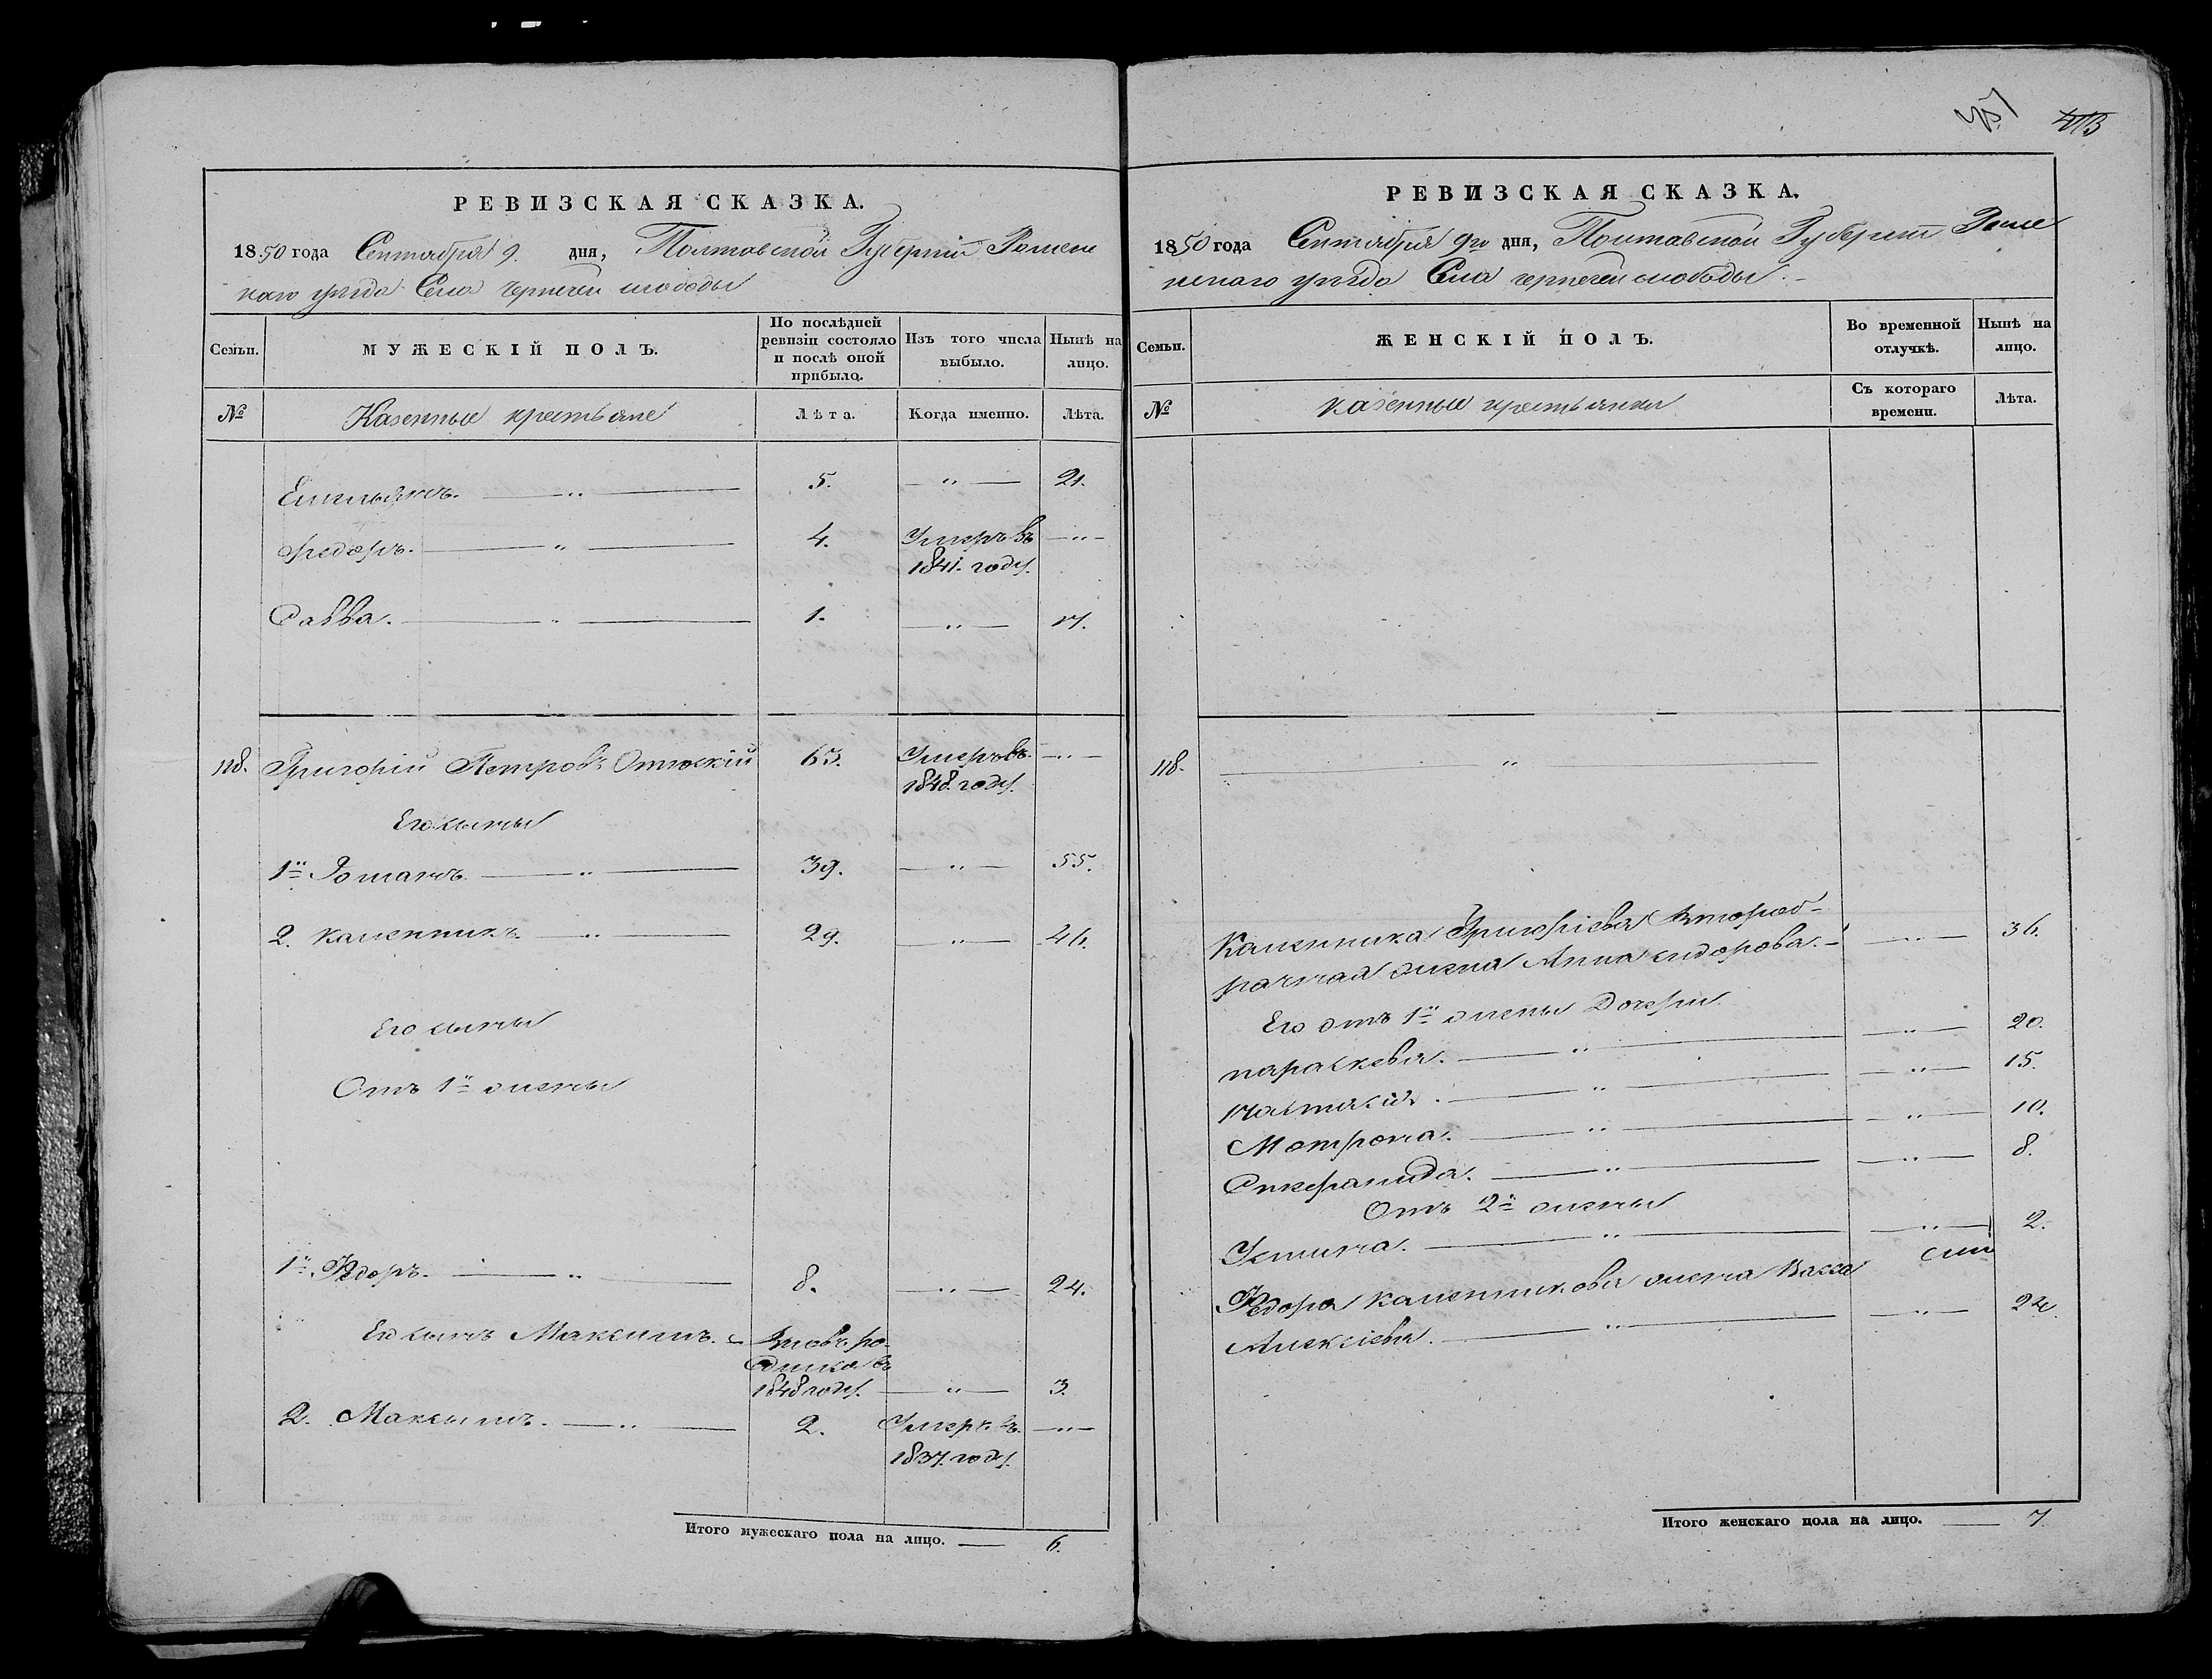 413
РЕВИЗСКАЯ СКАЗКА.
1850 года Сентября 9. дня, Полтавской Губерніи Роменс
каго уѣзда Села Чернечей слободы
Семьи. МУЖЕСКІЙ ПОЛЪ. По послѣдней ревизіи состояло и послѣ оной прибыло. Изъ того числа выбыло. Нынѣ на лицо.
№ Казенные крестьяне Лѣта. Когда именно. Лѣта.
Емельянъ. — „ — 5. — „ — 21.
Федоръ. — „ — 4. Умеръ въ — „ —
1841. году.
Савва. — „ — 1. — „ — 17.
118. Григорій Петровъ 63. Умеръ въ — „ —
1848. году.
Его сыны
1й Романъ. — „ — 39. — „ — 55.
2. Каленникъ. — „ — 29. — „ — 46.
Его сыны
Отъ 1й жены
1й Федоръ. — „ — 8. — „ — 24.
Его сынъ Максимъ. — Вновь ро-
дился въ
1848 году. — „ — 3.
2. Максимъ. — „ — 2. Умеръ въ — „ —
1837. году.
Итого мужескаго пола на лицо. — 6.
РЕВИЗСКАЯ СКАЗКА.
1850 года Сентября 9го дня, Полтавской Губерніи Роме
нскаго уѣзда Села Чернечей слободы
Семьи. ЖЕНСКІЙ ПОЛЪ. Во временной отлучкѣ. Нынѣ на лицо.
№ Казенные крестьянки Съ котораго времени. Лѣта.
118. — „ —
Каленника Григоріева второб-
рачная жена Анна Сидорова. — — „ — 36.
Его отъ 1й жены Дочери
Параскева. — „ — — „ — 20.
Настасія. — „ — — „ — 15.
Мотрона. — „ — — „ — 10.
— „ — — „ — 8.
Отъ 2й жены
Устина. — „ — — „ — 2.
Федора Каленникова жена Васса
Алексіева. — „ — — „ — 24.
Итого женскаго пола на лицо. — 7.